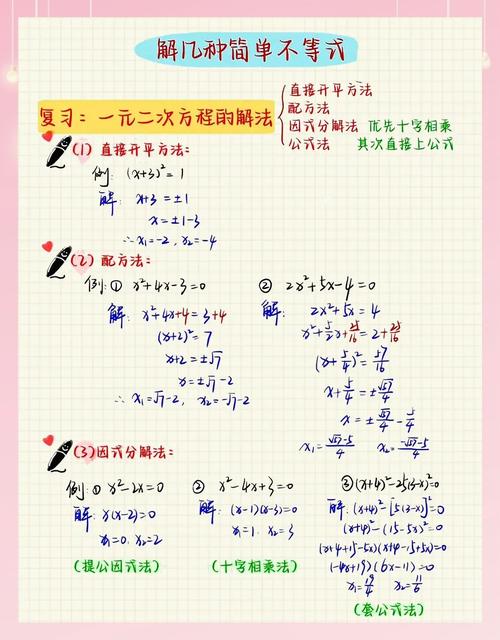 解几种简单不等式
复习：一元二次方程的解法
直接开平方法
配方法
因式分解法 优先十字相乘
公式法 其次直接上公式
(1) 直接开平方法：
例：(x+3)²=1
解：x+3=±1
x=±1-3
∴x₁=-2，x₂=-4
(2) 配方法：
例：① x²+4x-3=0
解：x²+4x+4=3+4
(x+2)²=7
x+2=±√7
x=±√7-2
∴ x₁=√7-2，x₂=-√7-2
② 2x²+5x-4=0
解：2x²+5x=4
x²+5/2x+25/16=2+25/16
(x+5/4)²=57/16
x+5/4=±√57/4
x=±√57/4-5/4
x₁=(√57-5)/4 x₂=(-√57-5)/4
(3) 因式分解法：
例：① x²-2x=0
解：x(x-2)=0
x₁=0，x₂=2
(提公因式法)
② x²-4x+3=0
解：(x-1)(x-3)=0
x₁=1，x₂=3
(十字相乘法)
③ (x+4)²-25(3-x)²=0
解：(x+4)²-[5(3-x)]²=0
(x+4)²-(15-5x)²=0
(x+4+15-5x)(x+4-15+5x)=0
(-4x+19)(6x-11)=0
x₁=19/4 x₂=11/6
(套公式法)